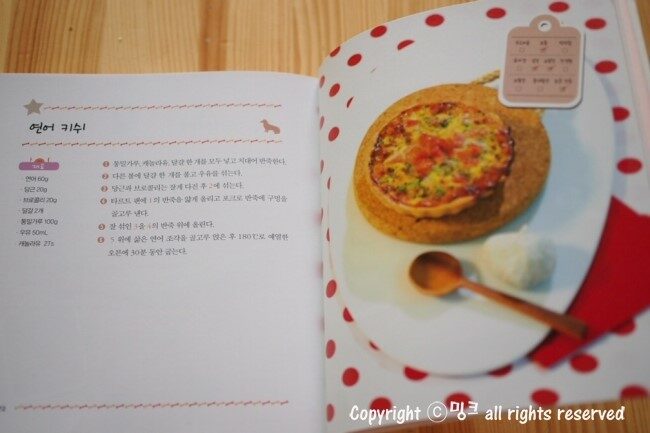 연어 키쉬
재료
연어 60g
당근 20g
브로콜리 20g
달걀 2개
통밀가루 100g
우유 50mL
캐놀라유 2Ts
1 통밀가루, 캐놀라유, 달걀 한 개를 모두 넣고 치대어 반죽한다.
2 다른 볼에 달걀 한 개를 풀고 우유를 섞는다.
3 당근과 브로콜리는 잘게 다진 후 2에 섞는다.
4 타르트 팬에 1의 반죽을 얇게 올리고 포크로 반죽에 구멍을
골고루 낸다.
5 잘 섞인 3을 4의 반죽 위에 올린다.
6 5 위에 삶은 연어 조각을 골고루 얹은 후 180℃로 예열한
오븐에 30분 동안 굽는다.
Copyright ⓒ밍크 all rights reserved